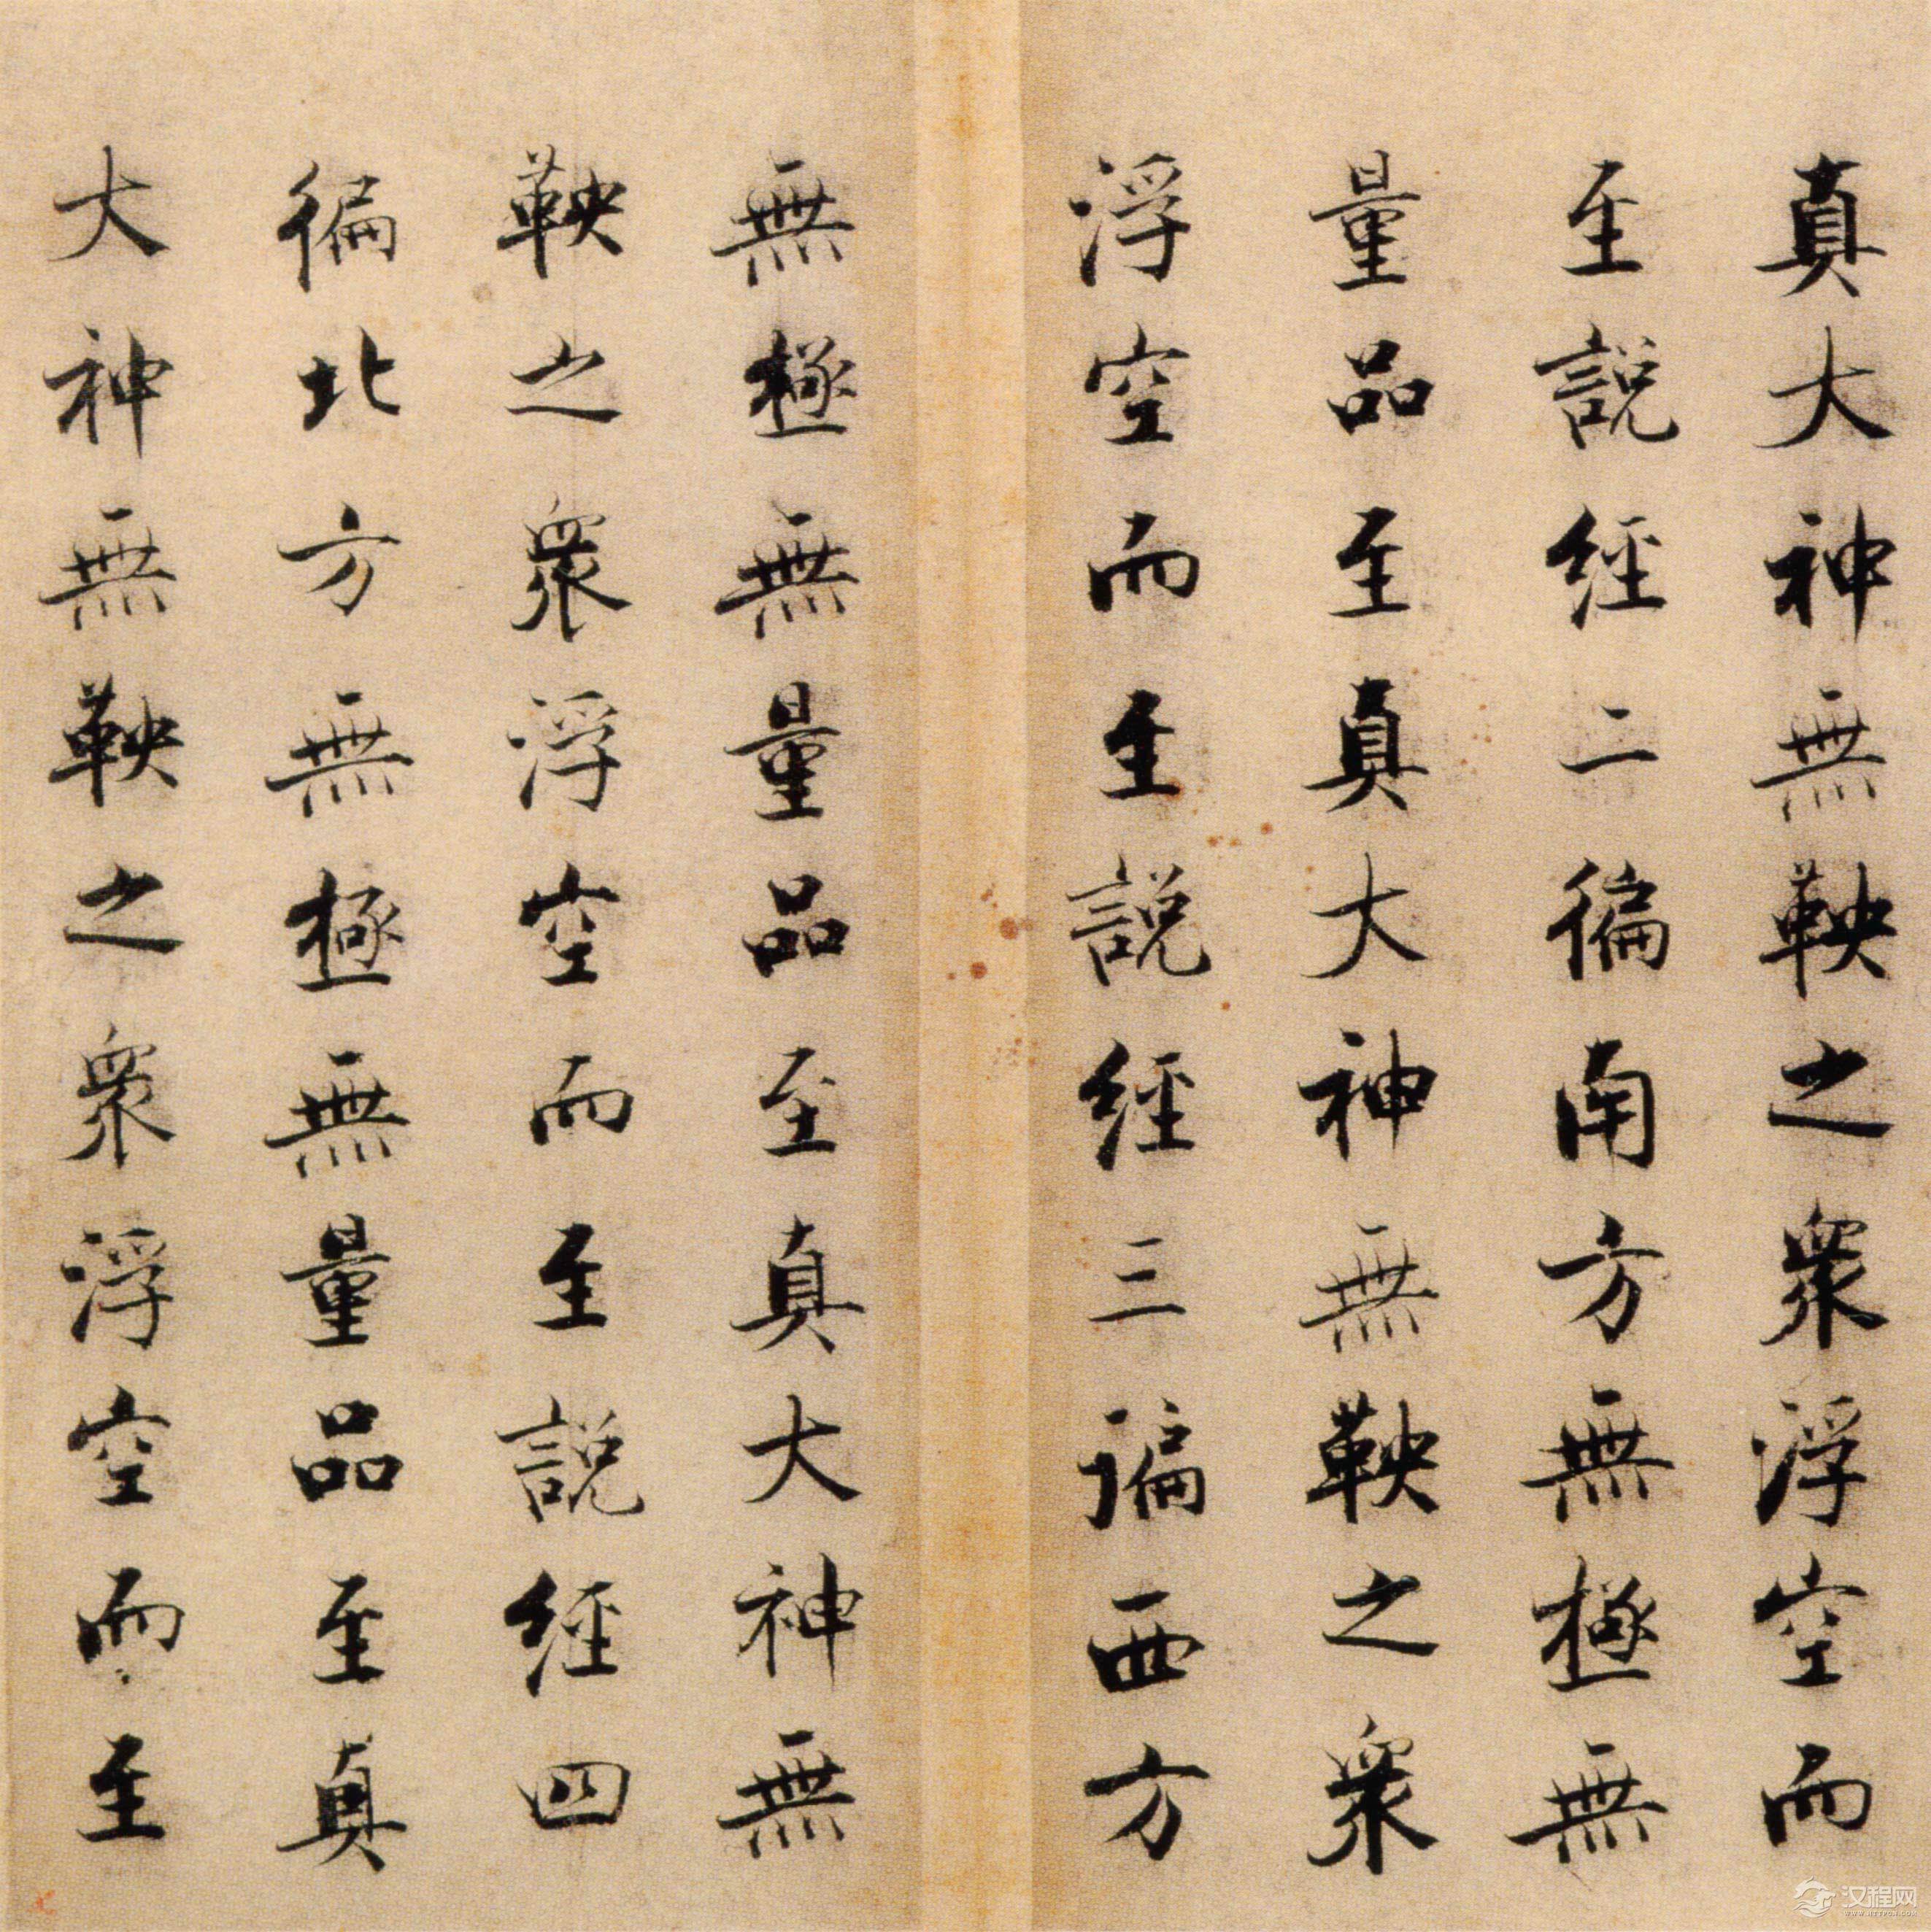 真大神無鞅之衆浮空而
至說經二徧南方無極無
量品至真大神無鞅之衆
浮空而至說經三徧西方
無極無量品至真大神無
鞅之衆浮空而至說經四
徧北方無極無量品至真
大神無鞅之衆浮空而至
汉程网
WWW.HTTPCN.COM